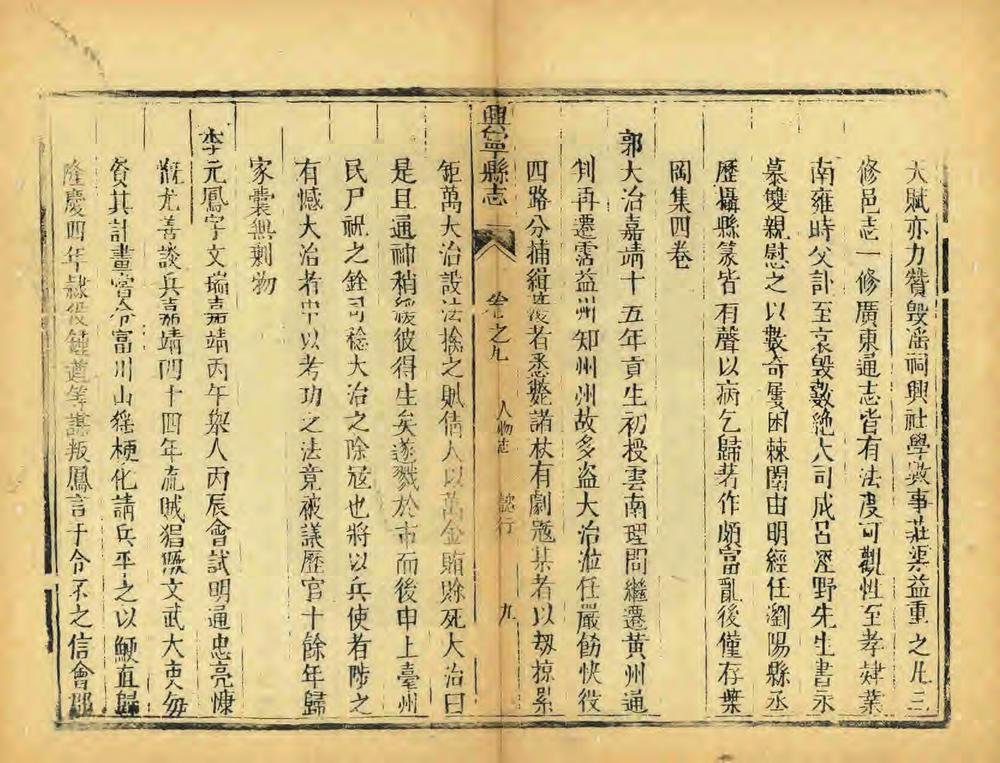 大賦亦力贊毀淫祠興社學數事莊渠益重之凡三
修邑志一修廣東通志皆有法度可觀性至孝肄業
南雍時父訃至哀毀數絕大司成呂涇野先生書永
慕雙親慰之以數奇屢困棘闈由明經任瀏陽縣丞
歷攝縣篆皆有聲以病乞歸著作頗富亂後僅存葉
岡集四卷
郭大治嘉靖十五年貢生初授雲南理問繼遷黃州通
判再遷霑益州知州州故多盜大治涖任嚴飭快役
四路分捕緝獲者悉斃諸杖有劇冠某者以刼掠累
興寧縣志
卷之九 人物志 認行 九
鉅萬大治設法擒之賊倩人以萬金賄賒死大治曰
是且通神稍緩彼得生矣遂戮於市而後申上臺州
民尸祝之銓司稔大治之除冦也將以兵使者陟之
有憾大治者中以考功之法竟被議歷官十餘年歸
家囊無剩物
李元鳳字文瑞嘉靖丙午舉人丙辰會試明通忠亮慷
慨尤善談兵嘉靖四十四年流賊猖獗文武大吏每
資其計畫嘗令富川山猺梗化請兵平之以鯁直歸
隆慶四年隷役鍾遵等謀叛鳳言于令不之信會郡